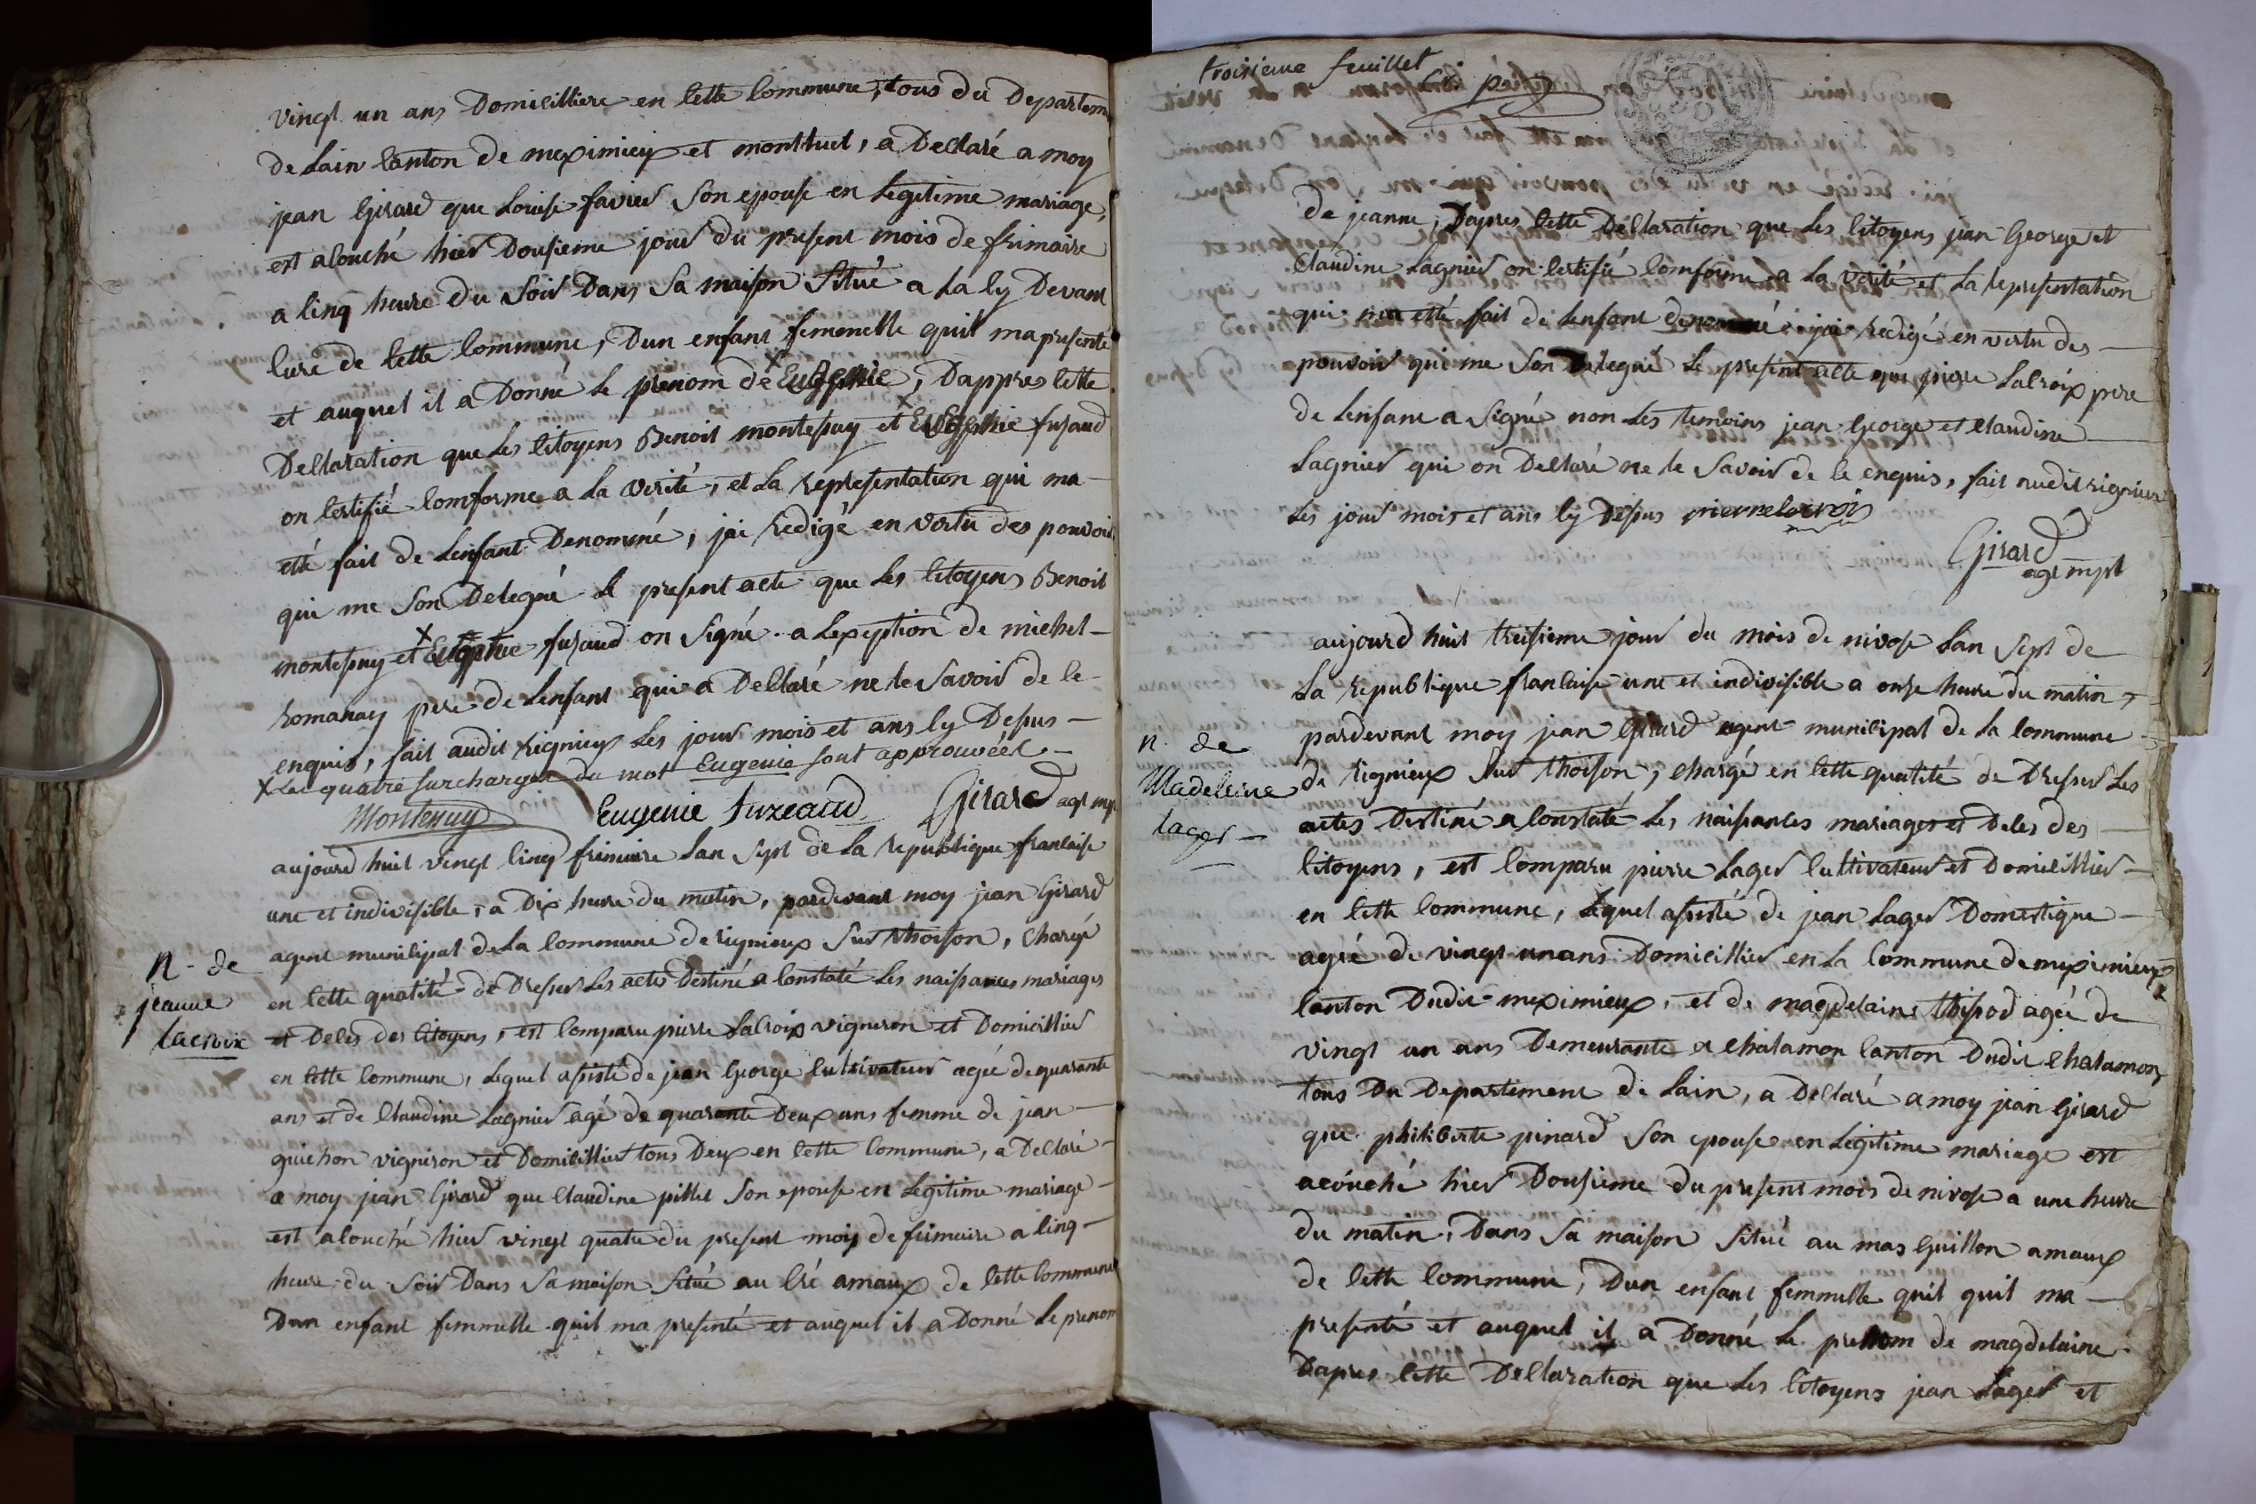 vingt un ans Domicilliere en cette commune, tous du Departem
de Lain canton de meximieux et montluel, a Declaré a moy
jean Girard que Louise favier son epouse en Legitime mariage,
est acouché hier Dousieme jour du present mois de frimaire
a cinq heure du soir Dans sa maison situé a La cy Devant
cure de cette commune, Dun enfant femenelle quil ma presenté
et auquel il a Donné le prenom de x Eugenie, Dappres cette
Declaration que Les citoyens Benoit montessuy et x Eugenie fusaud
on certifié comforme a La verité, et La representation qui ma
eté fait de Lenfant Denommé, jai Redigé en vertu des pouvoir
qui me son Delegué Le present acte que Les citoyens Benoit
montessuy et x Eugenie fusaud on signé a Lexeption de michel
Romanay pere de Lenfant qui a Declaré ne le savoir de ce
enquis, fait audit rignieux Les jour mois et ans cy Dessus
x Les quatre surcharges du mot Eugenie sont approuvéés
Montessuy Eugenie fuzeaud Girard agt mpl
n. de
jeanne
Lacroix
aujourd huit vingt cinq frimaire Lan sept de La republique francaise
une et indivisible, a Dix heure du matin, pardevant moy jean Girard
agent municipal de La commune de rignieux sur thoison, chargé
en cette qualité de Dresser Les actes Destiné a constaté Les naissances mariages
et Deces des citoyens, est comparu pierre Lacroix vigneron et Domicillier
en cette commune, Lequel assisté de jean George cultivateur agée de quarante
ans et de Claudine Lagnier agé de quarante Deux ans femme de jean
guichon vigneron et Domicillier tous Deux en cette commune, a Declaré
a moy jean Girard que Claudine pillet son epouse en Legitime mariage
est acouché hier vingt quatre du present mois de frimaire a cinq
heure du soir Dans sa maison situé au cré amaux de cette commune
Dun enfant femmelle quil ma presenté et auquel il a Donné Le prenom
troisieme feuillet
de jeanne, Dapres cette Declaration que Les citoyens jean George et
Claudine Lagnier on certifié comforme a La verité et La representation
qui ma etté fait de Lenfant denommé jai redigé en vertu des
pouvoir qui me son Delegué Le present acte que pierre Lacroix pere
de Lenfant a signé non Les temoins jean George et claudine
Lagnier qui on Declaré ne le savoir de ce enquis, fait audit rignieux
Les jour mois et ans cy Dessus pierre lacroix
Girard
agt mpl
n. de
Madeleine
Lager
aujourd huit treisieme jour du mois de nivose Lan sept de
La republique francaise une et indivisible a onze heure du matin,
pardevant moy jean Girard agent municipal de La commune
de rignieux sur thoison, chargé en cette qualité de Dresser Les
actes Destiné a constaté Les naissances mariages et Deces des
citoyens, est comparu pierre Lager cultivateur et Domicillier
en cette commune, Lequel assisté de jean Lager Domestique
agée de vingt un ans Domicillier en La commune de meximieux
canton Dudit meximieux, et de magdelaine thipod agée de
vingt un ans Demeurante a chalamon canton Dudit chalamon
tous Du Departement de Lain, a Declaré a moy jean Girard
que philiberte pinard son epouse en Legitime mariage est
acouché hier Dousieme du present mois de nivose a une heure
du matin, Dans sa maison situé au mas Guillon amaux
de cette commune, Dun enfant femmelle quil quil ma
presenté et auquel il a Donné Le prenom de magdelaine
Dapres cette Declaration que Les citoyens jean Lager et